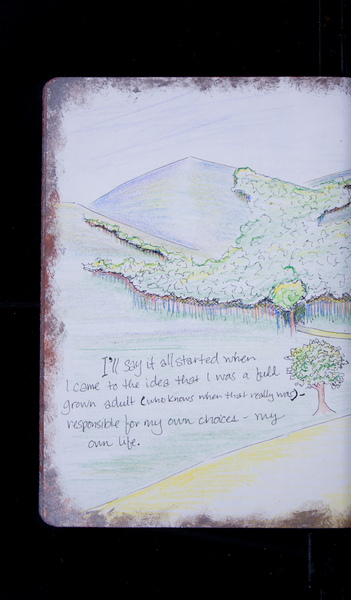 I'll say it all started when
I came to the idea that I was a full
grown adult (who knows when that really was)-
responsible for my own choices - my
own life.